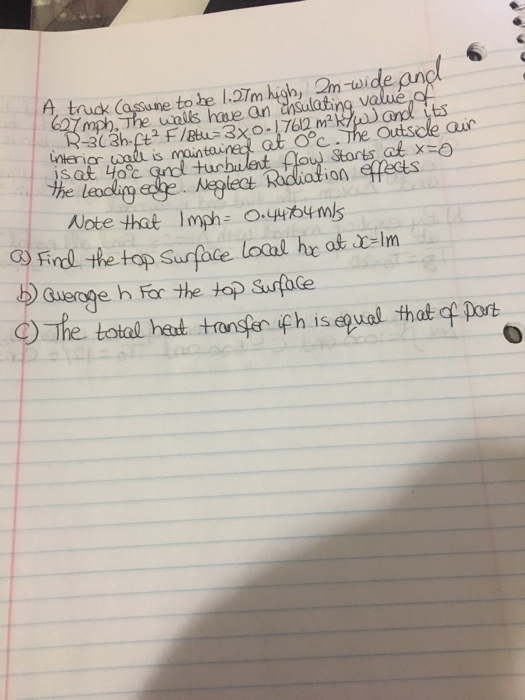 A truck (assume to be 1.27m high, 2m-wide and
627mph. The walls have an insulating value of
R-3(3h.ft² F/Btu=3x0.17612 m²k/w) and its
interior wall is maintained at 0°c. The outside air
is at 40°c and turbulent flow starts at x=0
the leading edge. Neglect Radiation effects
Note that 1mph= 0.44704m/s
a) Find the top surface local hx at x=1m
b) average h For the top surface
c) The total heat transfer if h is equal that of part